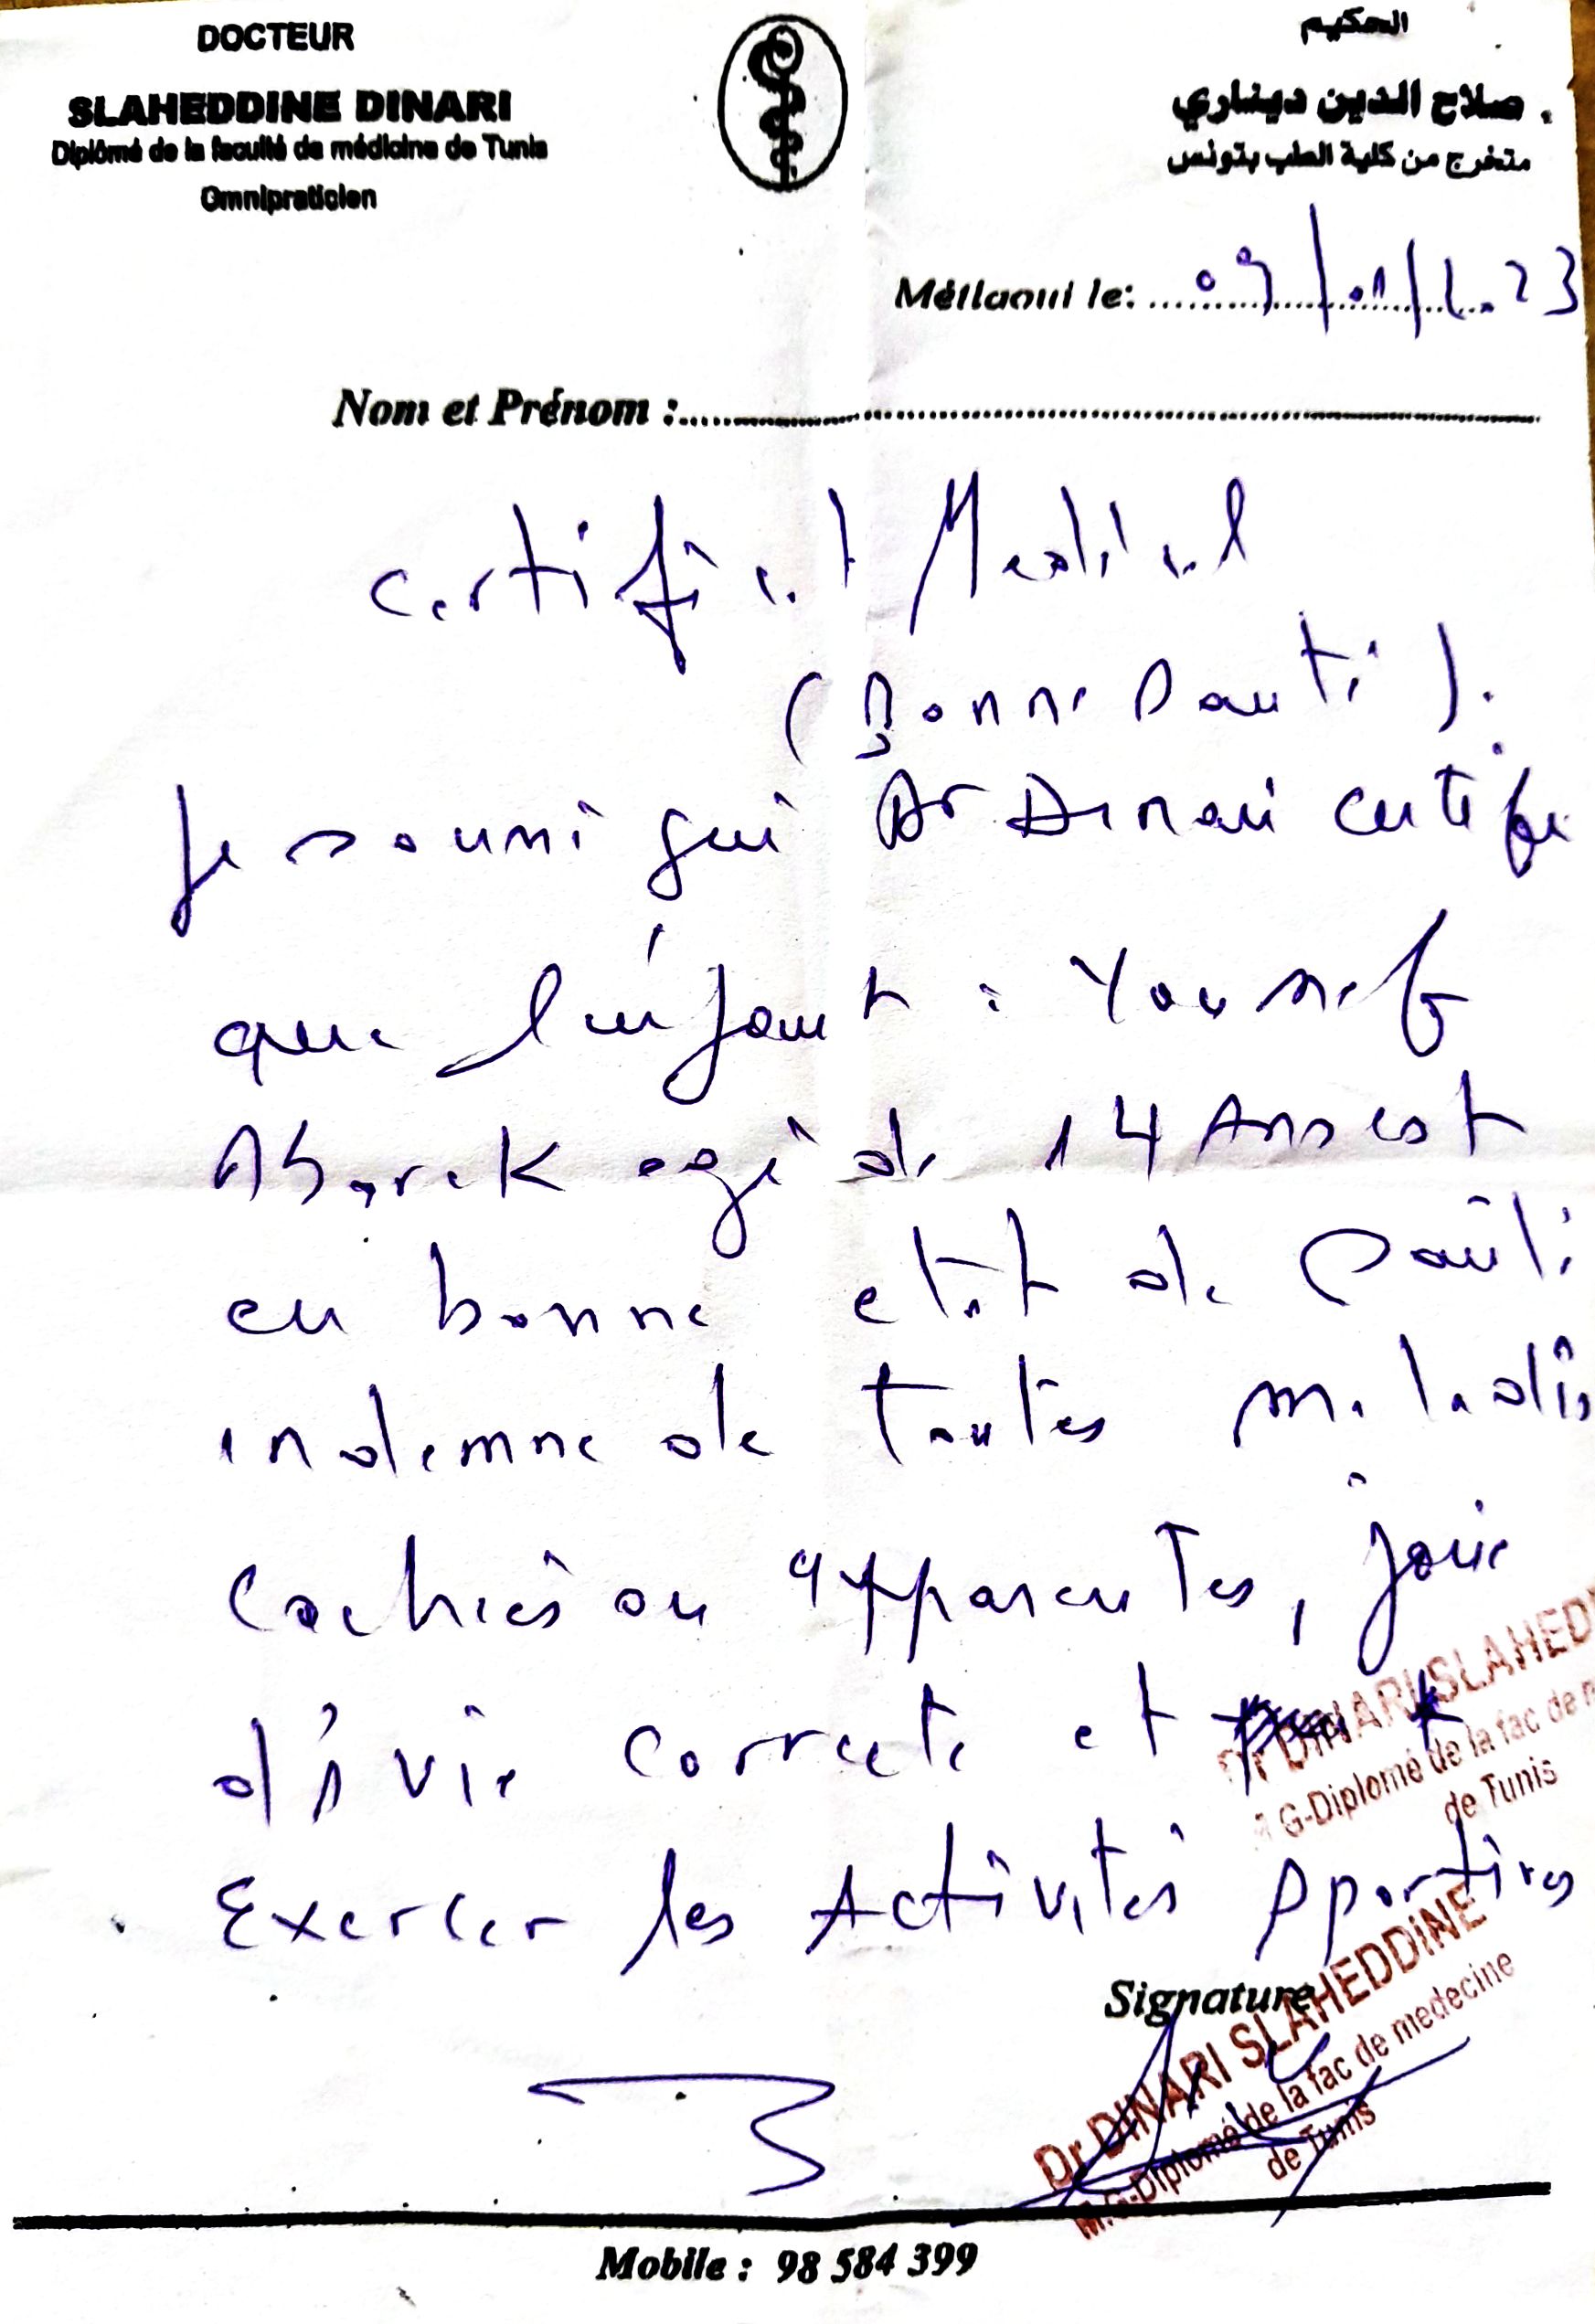 DOCTEUR
SLAHEDDINE DINARI
Diplômé de la faculté de médicine de Tunis
Omnipraticien
الحكيم
صلاح الدين ديناري
متخرج من كلية الطب بتونس
Métlaoui le: 09/01/2023
Nom et Prénom :
Certificat Medical
(Bonne Santé).
Je soussigné Dr Dinari certifie
que l'enfant : Youssef
Abarek agé de 14 Ans est
en bonne etat de santé
indemne de toutes maladies
cachées ou apparentes, jouie
d'1 vie correcte et
Exercer les Activités Sportives
Dr DINARI SLAHED
G-Diplomé de la fac de
de Tunis
Signature
Dr DINARI SLAHEDDINE
M.G-Diplomé de la fac de medecine
de Tunis
Mobile : 98 584 399